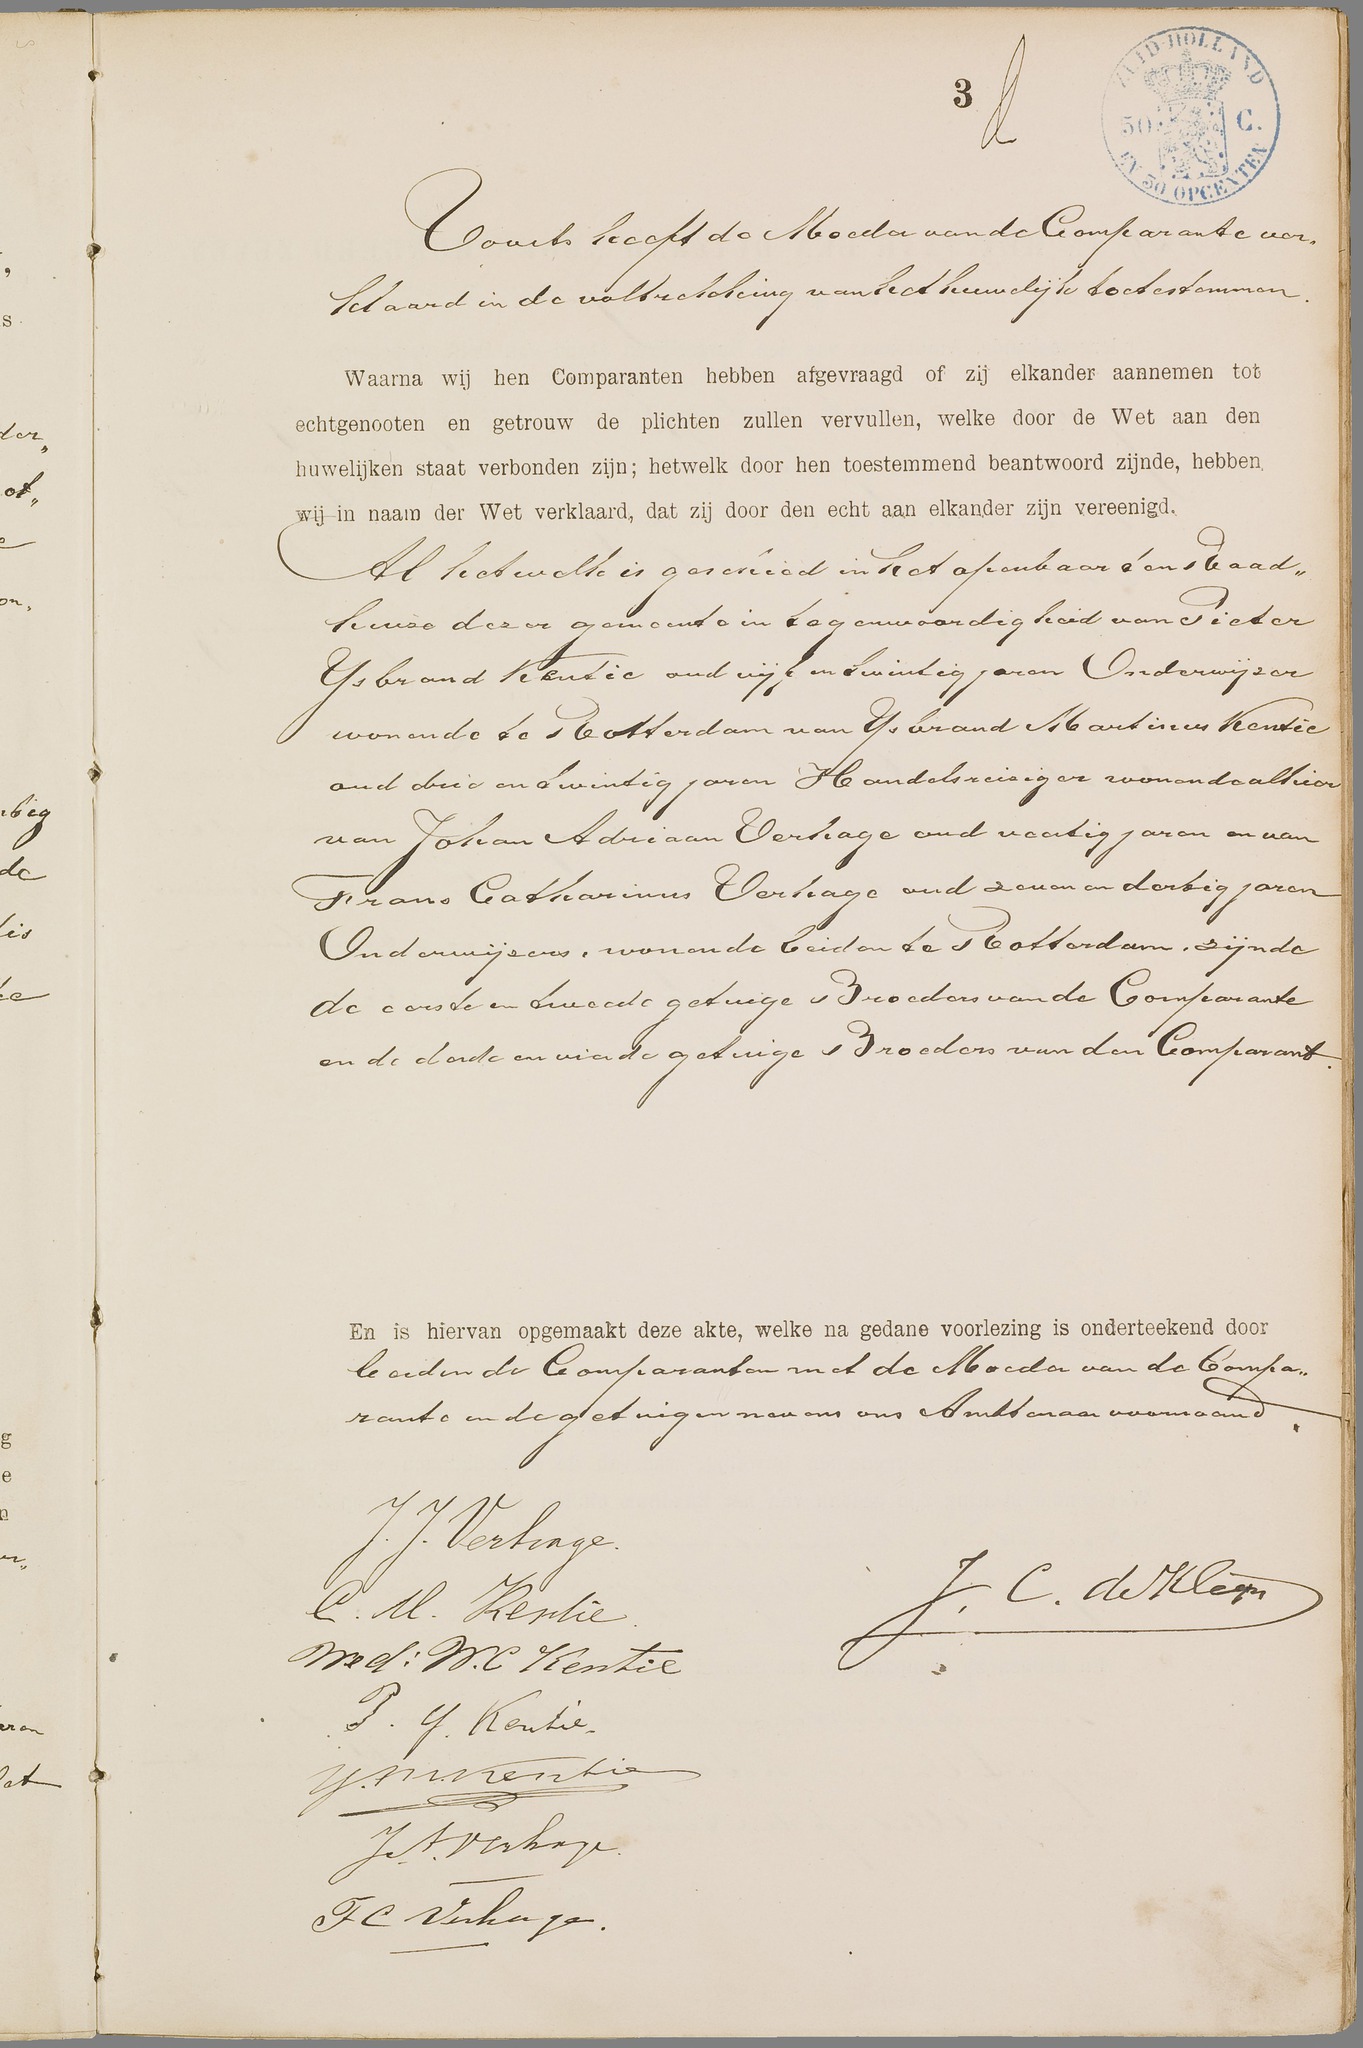 3
ZUID-HOLLAND
50 C.
EN 50 OPCENTEN
Voorts heeft de Moeder van de Comparante ver„
klaard in de voltrekking van het huwelijk toetestemmen.
Waarna wij hen Comparanten hebben afgevraagd of zij elkander aannemen tot
echtgenooten en getrouw de plichten zullen vervullen, welke door de Wet aan den
huwelijken staat verbonden zijn; hetwelk door hen toestemmend beantwoord zijnde, hebben
wij in naam der Wet verklaard, dat zij door den echt aan elkander zijn vereenigd.
Al hetwelk is geschied in het openbaar ten Raad„
huize dezer gemeente in tegenwoordigheid van Pieter
Ysbrand Kentie oud vijf en twintig jaren Onderwijzer
wonende te Rotterdam van Ysbrand Martinus Kentie
oud drie en twintig jaren Handelsreiziger wonende alhier
van Johan Adriaan Verhage oud veertig jaren en van
Frans Catharinus Verhage oud zeven en dertig jaren
Onderwijzers, wonende beiden te Rotterdam, zijnde
de eerste en tweede getuige Broeders van de Comparante
en de derde en vierde getuige Broeders van den Comparant.
En is hiervan opgemaakt deze akte, welke na gedane voorlezing is onderteekend door
beiden de Comparanten met de Moeder van de Compa„
rante en de getuigen nevens ons Ambtenaar voornoemd.
J. J. Verhage.
C. M. Kentie.
J. C. de Kleijn
Wed: W. C Kentie
P. Y. Kentie.
Y. M. Kentie
J. A. Verhage.
F C Verhage.